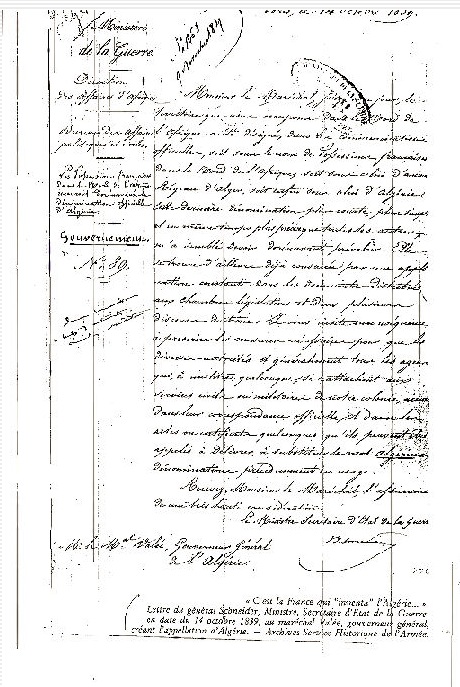 Paris, le 14 octobre 1839.
Ministère
de la Guerre.
Direction
des Affaires d'Afrique
Bureau des Affaires
politiques et civiles.
Les Possessions françaises
dans le Nord de l'Afrique
dénomination officielle
d'Algérie.
Gouvernement
N° 89.
Monsieur le Maréchal, jusqu'à ce jour, le
territoire que nous occupons dans le Nord de
l'Afrique a été désigné, dans les communications
officielles, soit sous le nom de Possessions françaises
dans le Nord de l'Afrique, soit sous celui d'ancienne
Régence d'Alger, soit enfin sous celui d'Algérie.
Cette dernière dénomination plus courte, plus simple
et en même temps plus précise que toutes les autres,
m'a semblé devoir dorénavant prévaloir. Elle
se trouve d'ailleurs déjà consacrée par une appli-
cation constante dans les documents distribués
aux chambres législatives et dans plusieurs
discours du trône. Je vous invite en conséquence
à prendre les mesures nécessaires pour que les
diverses autorités et généralement tous les agents
qui, à un titre quelconque, se rattachent aux
services civils ou militaires de notre colonie,
dans leur correspondance officielle, et dans les
actes ou certificats quelconques qu'ils peuvent être
appelés à délivrer, à substituer le mot Algérie aux
dénominations précédemment en usage.
Recevez, Monsieur le Maréchal, l'assurance
de ma très haute considération.
Le Ministre Secrétaire d'Etat de la Guerre
Schneider
M. le Mal Valée, Gouverneur Général
de l'Algérie.
« C'est la France qui "inventa" l'Algérie... »
Lettre du général Schneider, Ministre, Secrétaire d'Etat de la Guerre
en date du 14 octobre 1839, au maréchal Valée, gouverneur général,
créant l'appellation d'Algérie. — Archives Service Historique de l'Armée.